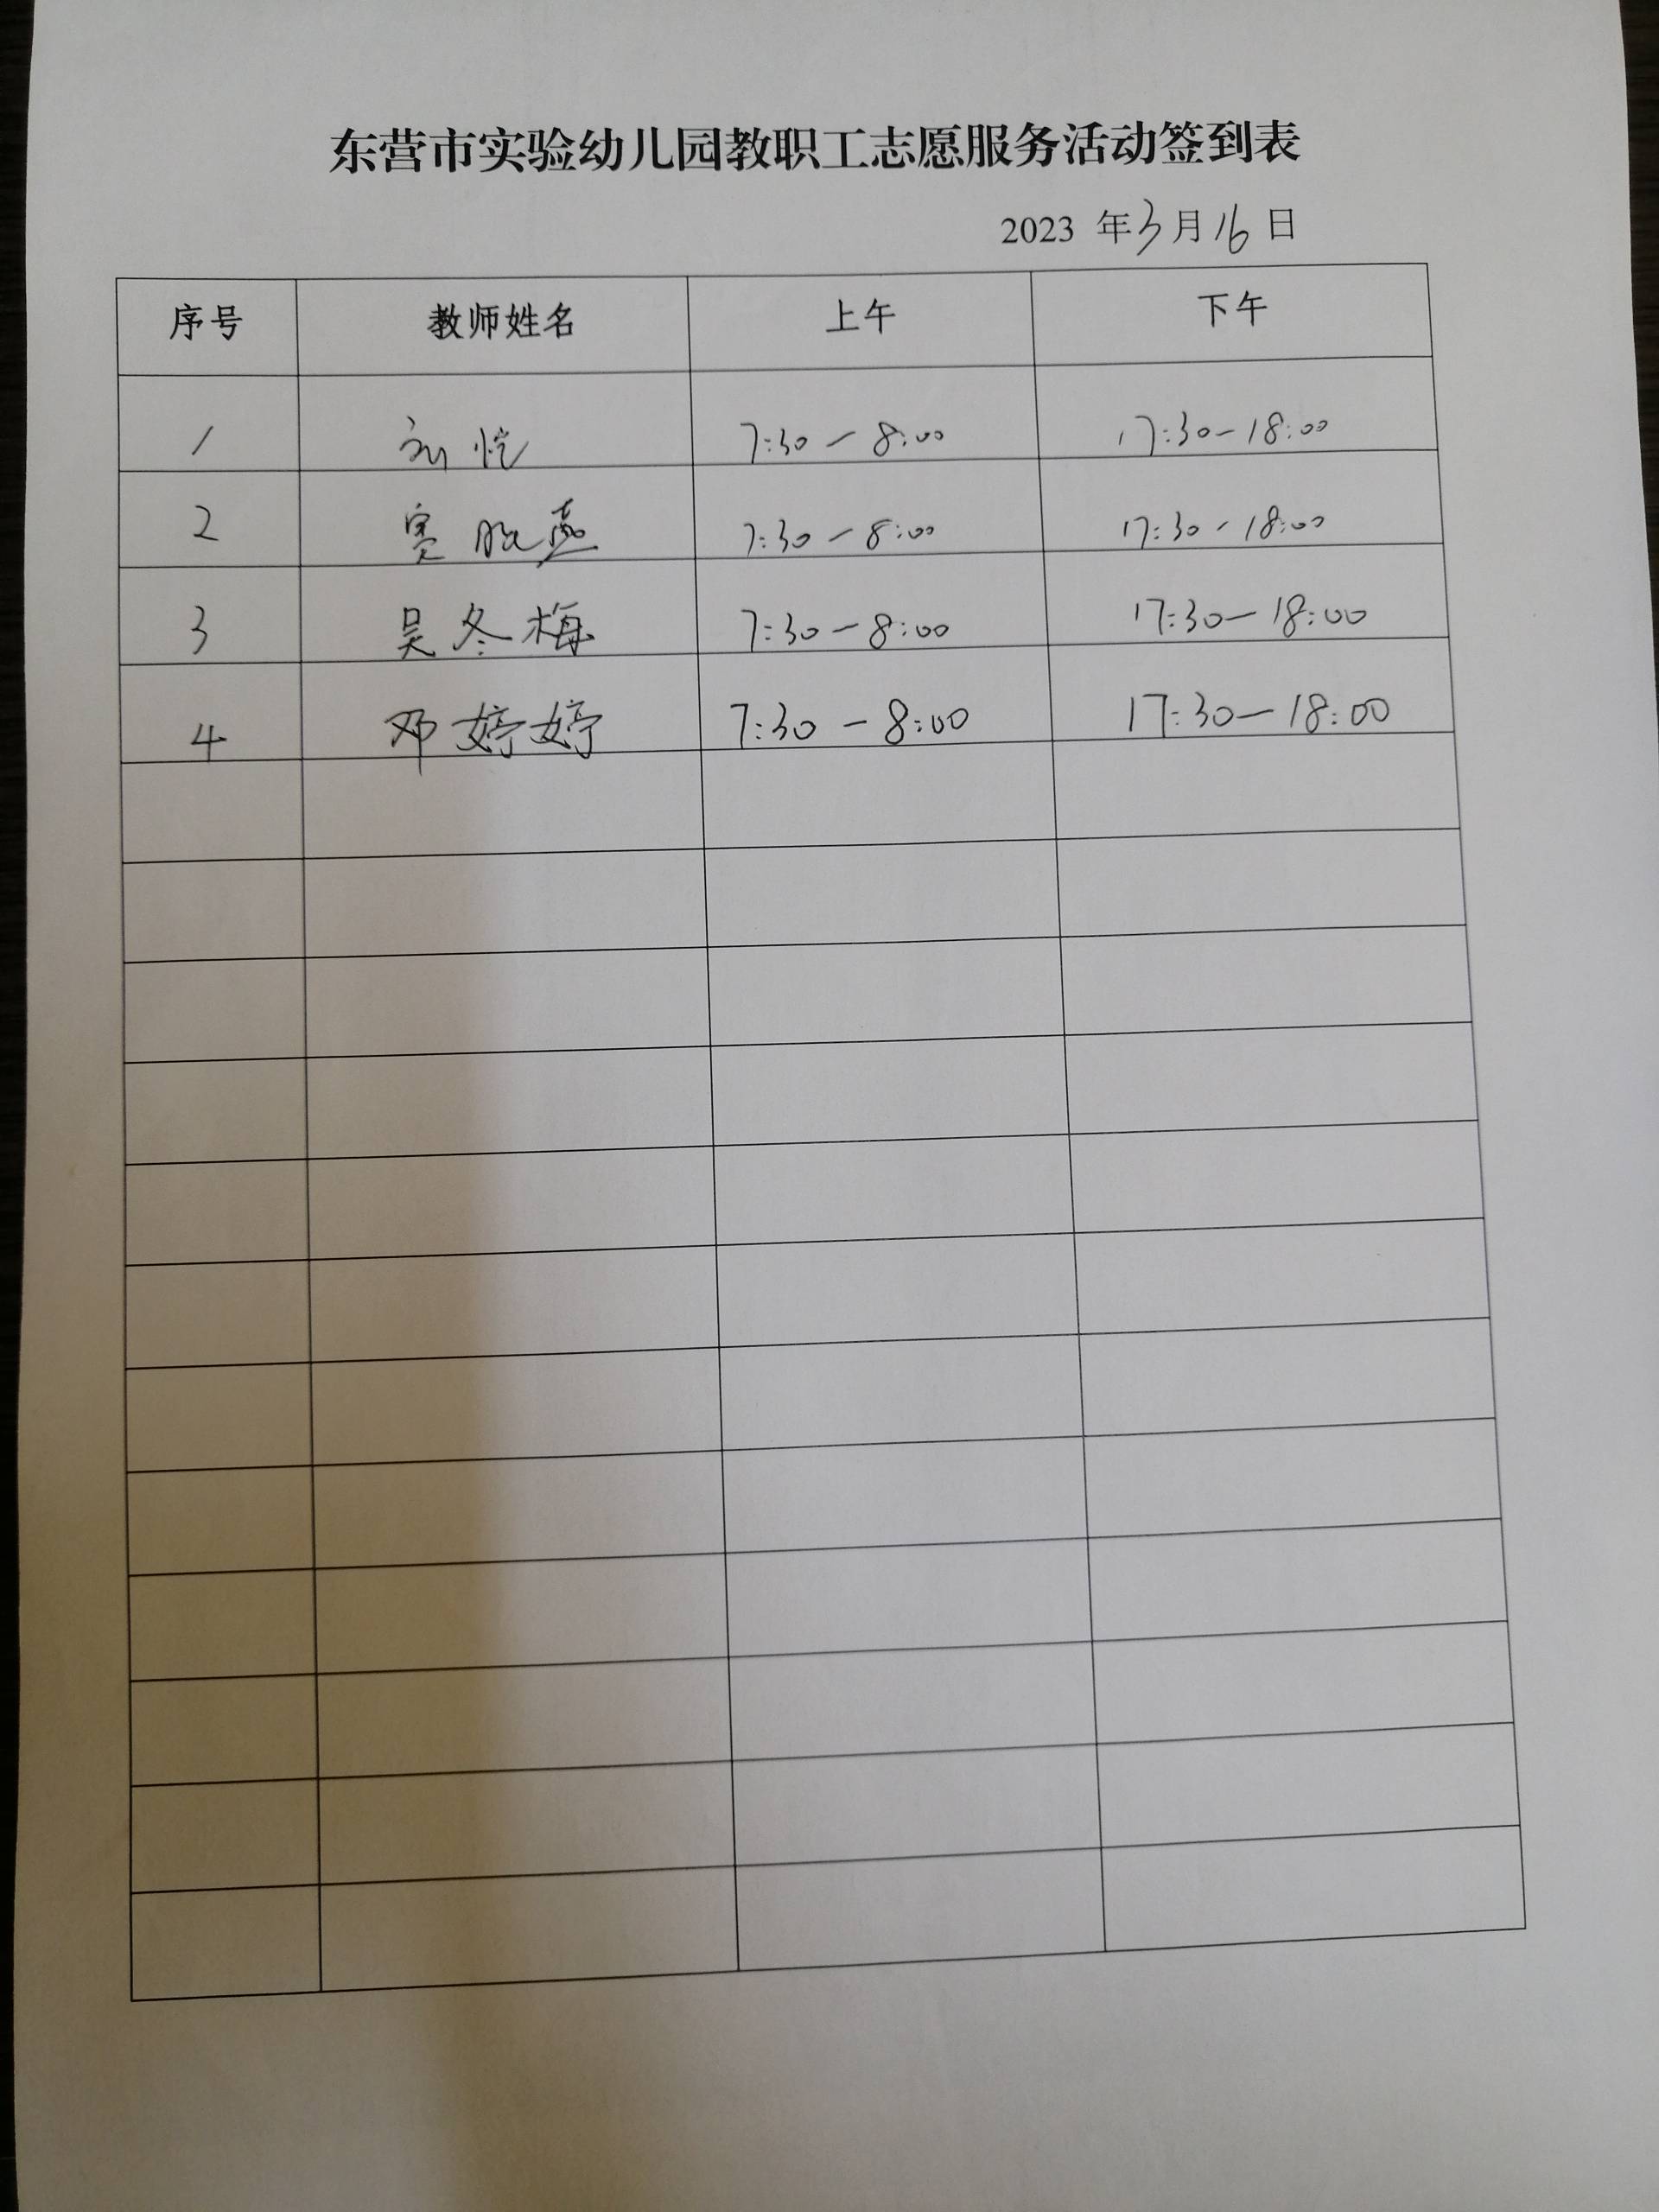 东营市实验幼儿园教职工志愿服务活动签到表
2023 年 3 月 16 日
序号 教师姓名 上午 下午
1 刘 7:30－8:00 17:30－18:00
2 7:30－8:00 17:30－18:00
3 吴冬梅 7:30－8:00 17:30－18:00
4 邓婷婷 7:30－8:00 17:30－18:00